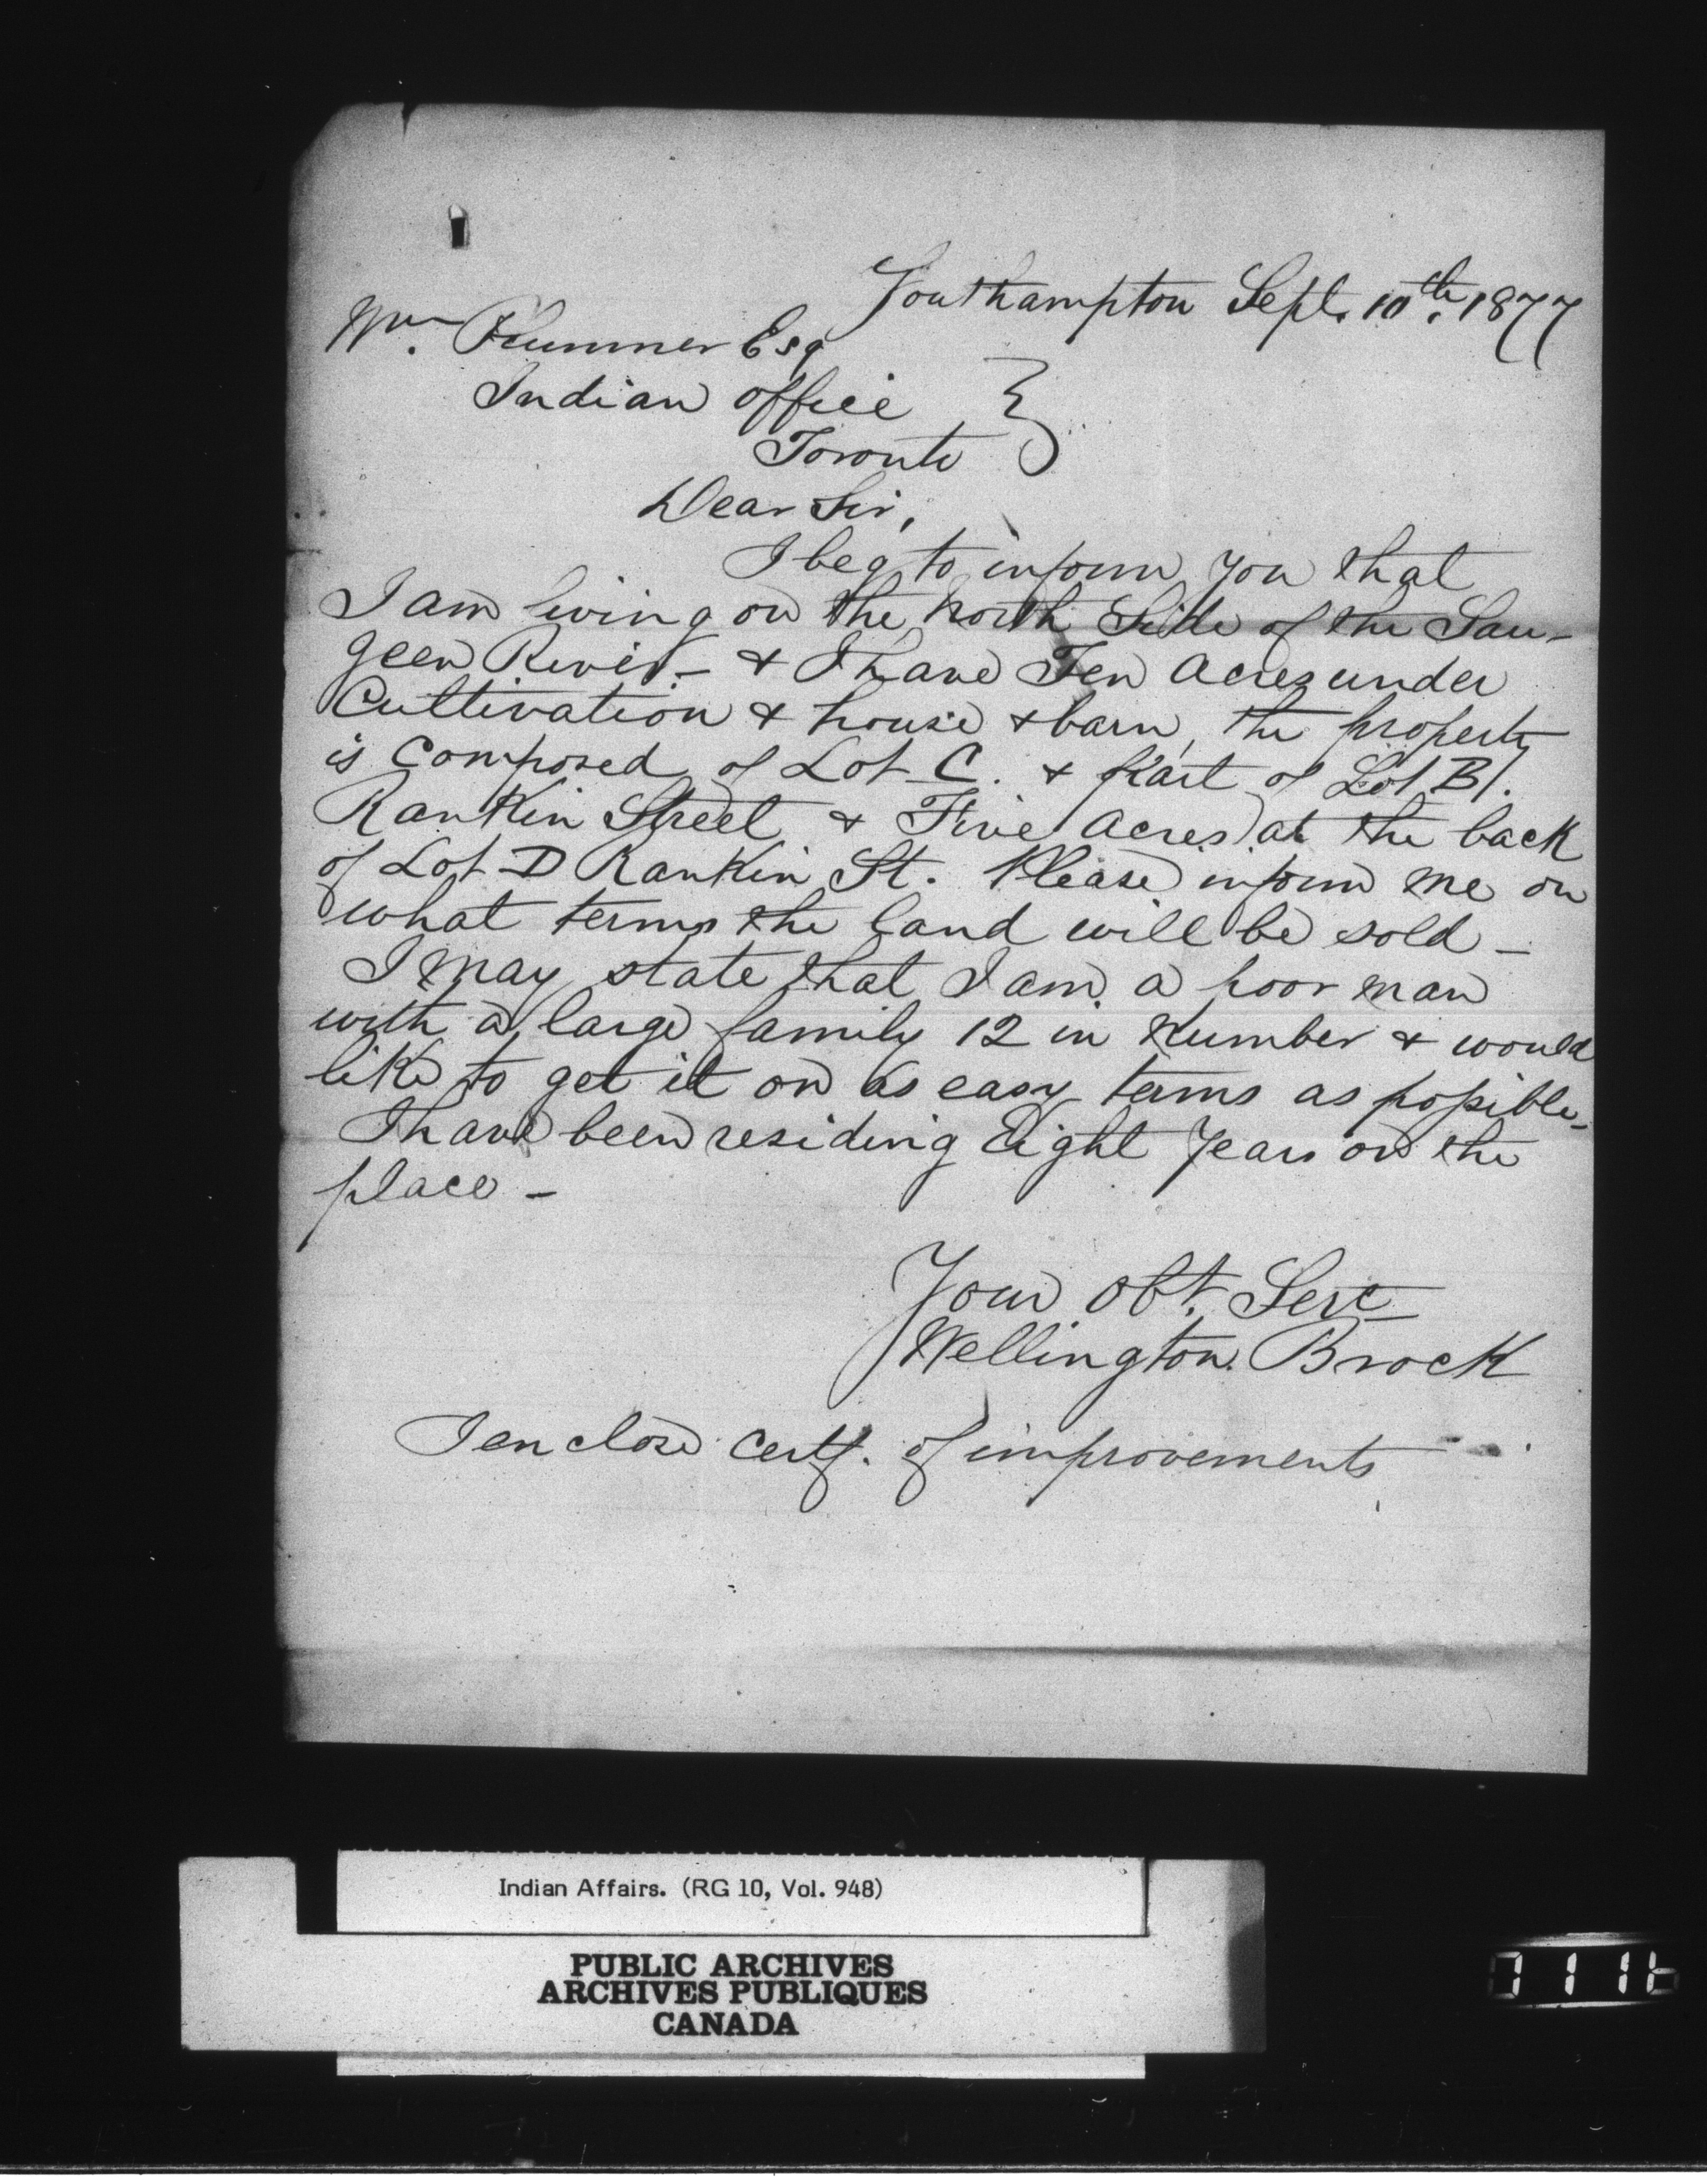 Southampton Sept. 10th, 1877
Wm. Plummer Esq
Indian Office
Toronto
Dear Sir,
I beg to inform you that
I am living on the North Side of the Sau-
geen River - & I have Ten Acres under
Cultivation & house & barn, the property
is Composed of Lot C. & Part of Lot B.
Rankin Street & Five Acres at the back
of Lot D Rankin St. Please inform me on
what terms the land will be sold -
I may state that I am a poor man
with a large family 12 in Number & would
like to get it on as easy terms as possible -
I have been residing Eight Years on the
place -
Your Obt. Servt
Wellington Brock
I enclose Certf. of improvements
Indian Affairs. (RG 10, Vol. 948)
PUBLIC ARCHIVES
ARCHIVES PUBLIQUES
CANADA